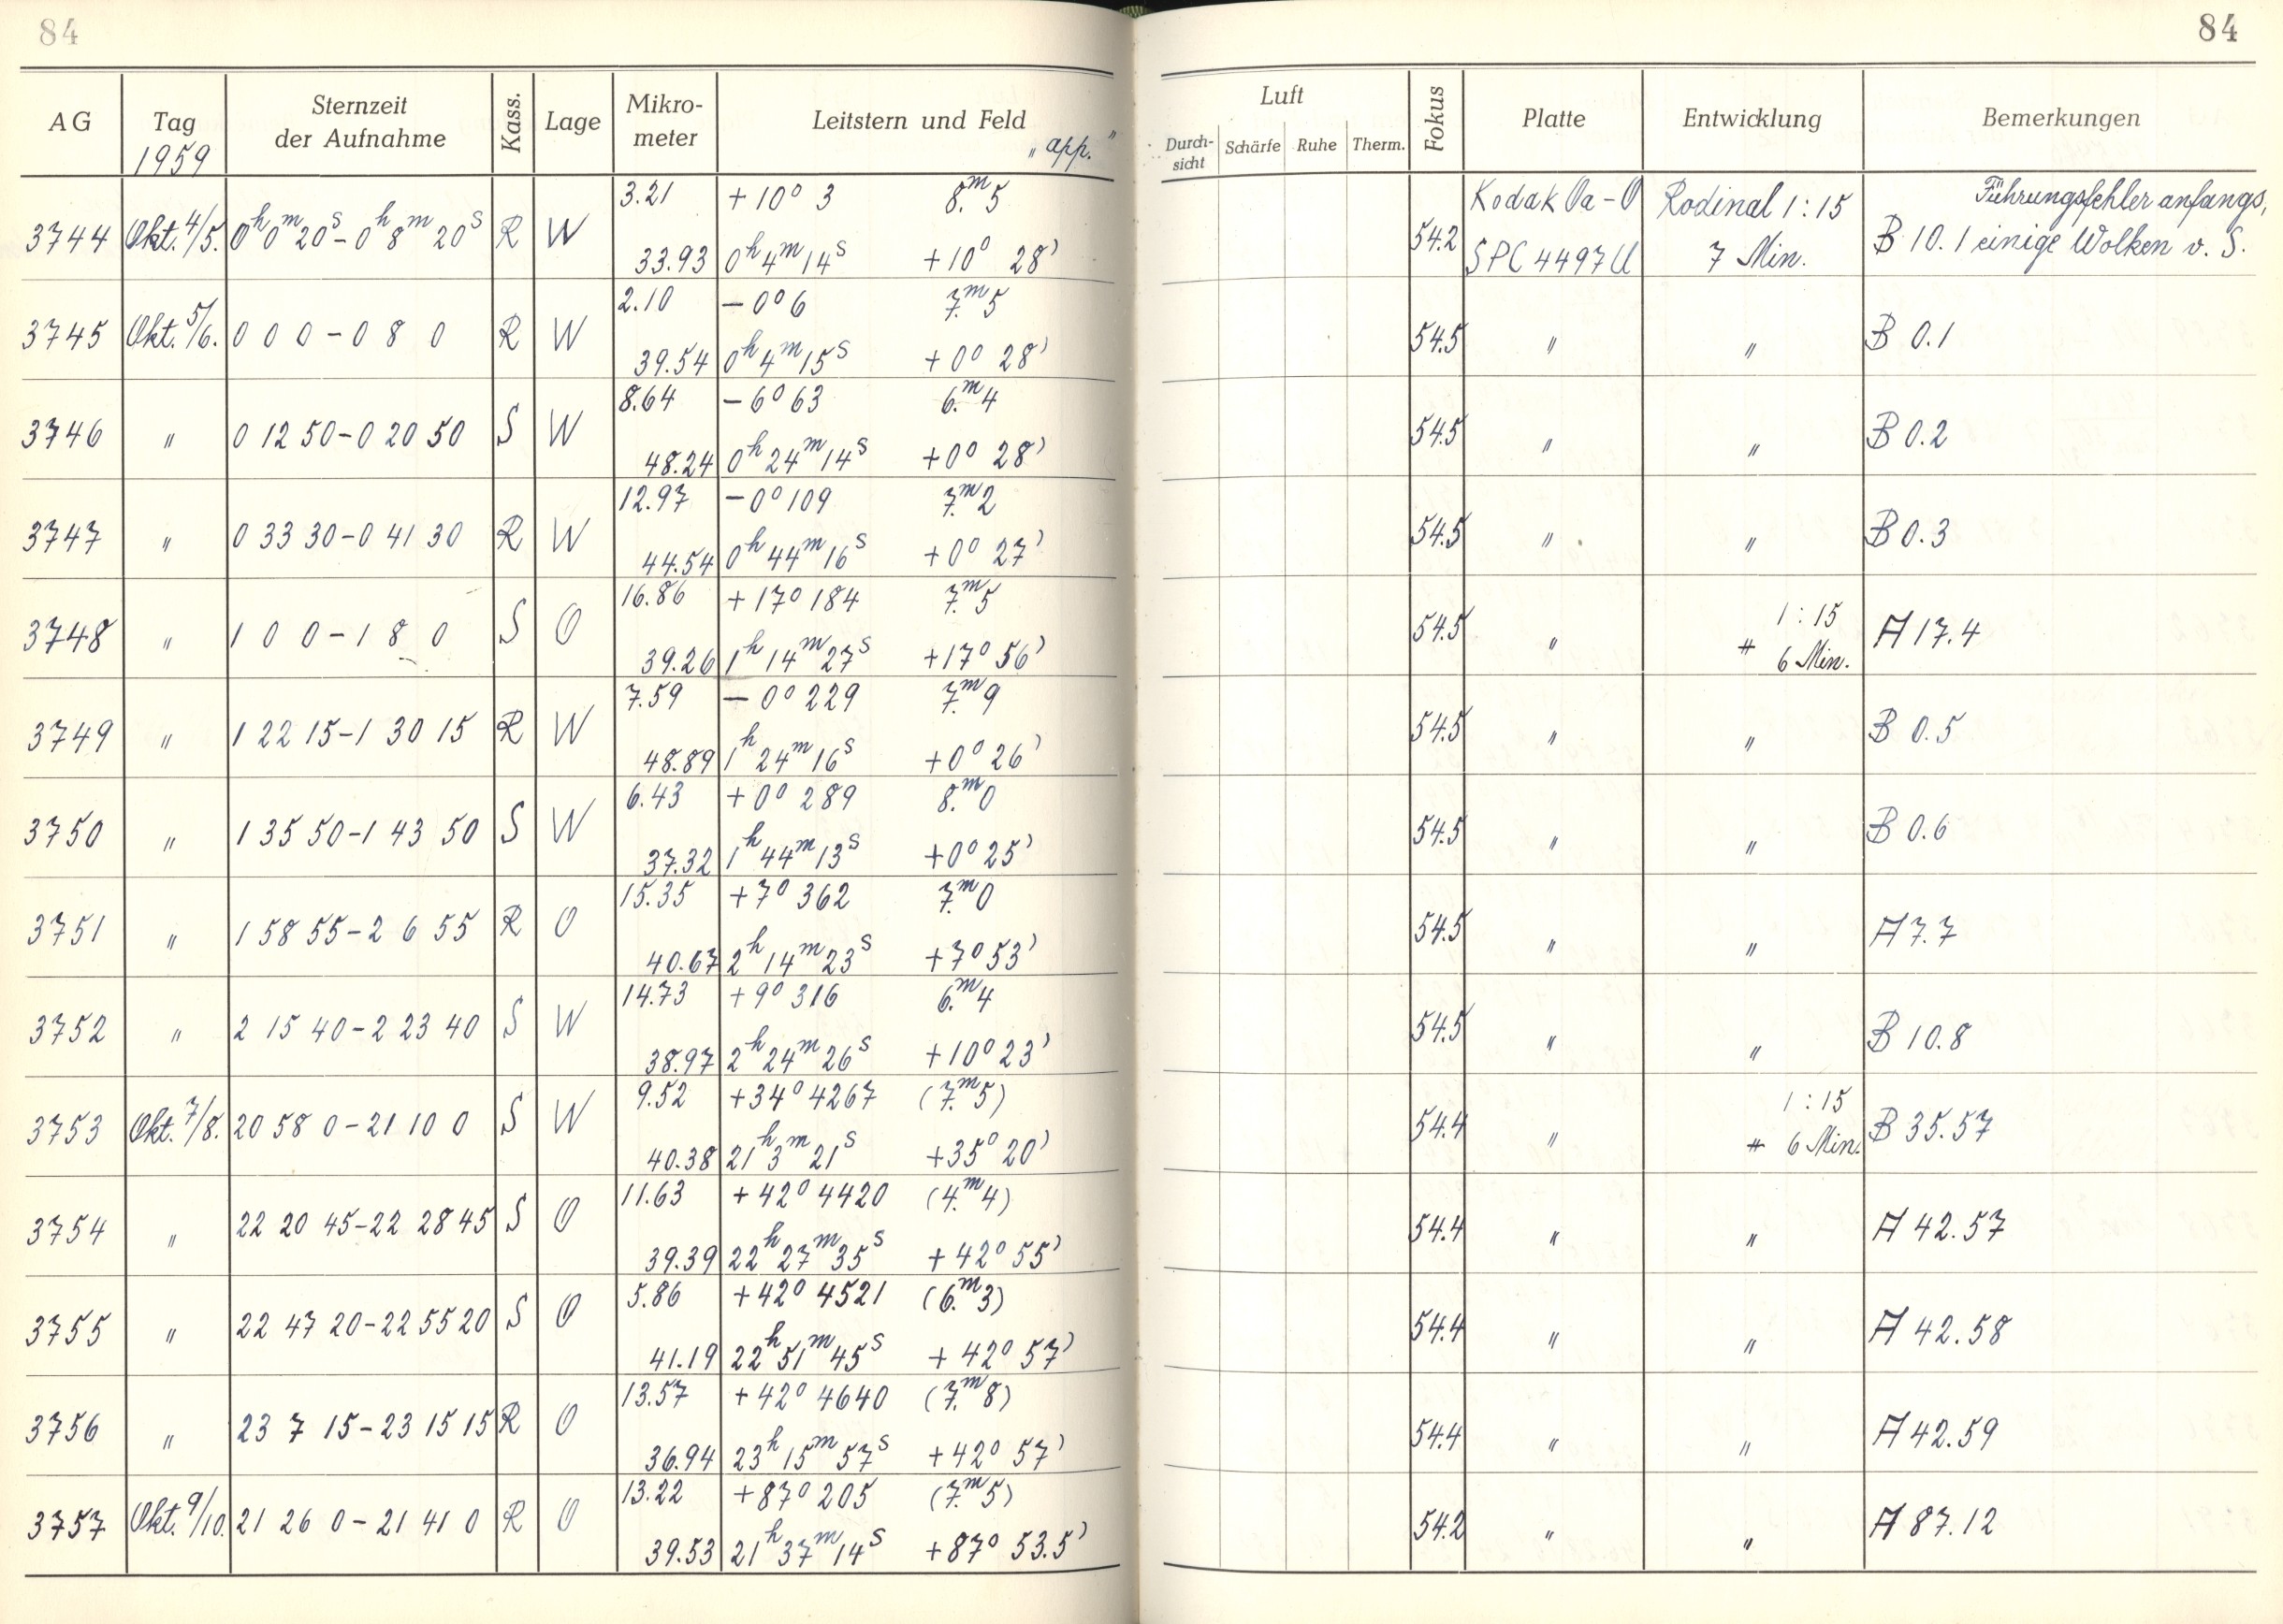 84
84
AG Tag 1959 Sternzeit der Aufnahme Kass. Lage Mikro-meter Leitstern und Feld "app." Luft Durch-sicht Schärfe Ruhe Therm. Fokus Platte Entwicklung Bemerkungen
3.21 +10° 3 8.ᵐ5 Kodak Oa-O Rodinal 1:15 Führungsfehler anfangs,
3744 Okt. 4/5. 0ʰ0ᵐ20ˢ-0ʰ8ᵐ20ˢ R W 54.2 B 10.1 einige Wolken v. S.
33.93 0ʰ4ᵐ14ˢ +10° 28' SPC 4497U 7 Min.
2.10 -0° 6 7.ᵐ5
3745 Okt. 5/6. 0 0 0-0 8 0 R W 54.5 " " B 0.1
39.54 0ʰ4ᵐ15ˢ +0° 28'
8.64 -6° 63 6.ᵐ4
3746 " 0 12 50-0 20 50 S W 54.5 " " B 0.2
48.24 0ʰ24ᵐ14ˢ +0° 28'
12.97 -0° 109 7.ᵐ2
3747 " 0 33 30-0 41 30 R W 54.5 " " B 0.3
44.54 0ʰ44ᵐ16ˢ +0° 27'
16.86 +17° 184 7.ᵐ5 1:15
3748 " 1 0 0-1 8 0 S O 54.5 " " A 17.4
39.26 1ʰ14ᵐ27ˢ +17° 56' 6 Min.
7.59 -0° 229 7.ᵐ9
3749 " 1 22 15-1 30 15 R W 54.5 " " B 0.5
48.89 1ʰ24ᵐ16ˢ +0° 26'
6.43 +0° 289 8.ᵐ0
3750 " 1 35 50-1 43 50 S W 54.5 " " B 0.6
37.32 1ʰ44ᵐ13ˢ +0° 25'
15.35 +7° 362 7.ᵐ0
3751 " 1 58 55-2 6 55 R O 54.5 " " A 7.7
40.67 2ʰ14ᵐ23ˢ +7° 53'
14.73 +9° 316 6.ᵐ4
3752 " 2 15 40-2 23 40 S W 54.5 " " B 10.8
38.97 2ʰ24ᵐ26ˢ +10° 23'
9.52 +34° 4267 (7.ᵐ5) 1:15
3753 Okt. 7/8. 20 58 0-21 10 0 S W 54.4 " " B 35.57
40.38 21ʰ3ᵐ21ˢ +35° 20' 6 Min.
11.63 +42° 4420 (4.ᵐ4)
3754 " 22 20 45-22 28 45 S O 54.4 " " A 42.57
39.39 22ʰ27ᵐ35ˢ +42° 55'
5.86 +42° 4521 (6.ᵐ3)
3755 " 22 47 20-22 55 20 S O 54.4 " " A 42.58
41.19 22ʰ51ᵐ45ˢ +42° 57'
13.57 +42° 4640 (7.ᵐ8)
3756 " 23 7 15-23 15 15 R O 54.4 " " A 42.59
36.94 23ʰ15ᵐ57ˢ +42° 57'
13.22 +87° 205 (7.ᵐ5)
3757 Okt. 9/10. 21 26 0-21 41 0 R O 54.2 " " A 87.12
39.53 21ʰ37ᵐ14ˢ +87° 53.5'